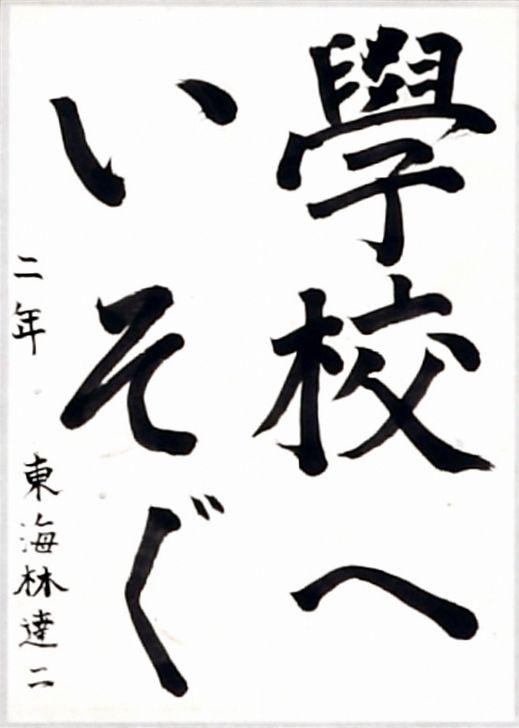 學校へ
いそぐ
二年 東海林達二